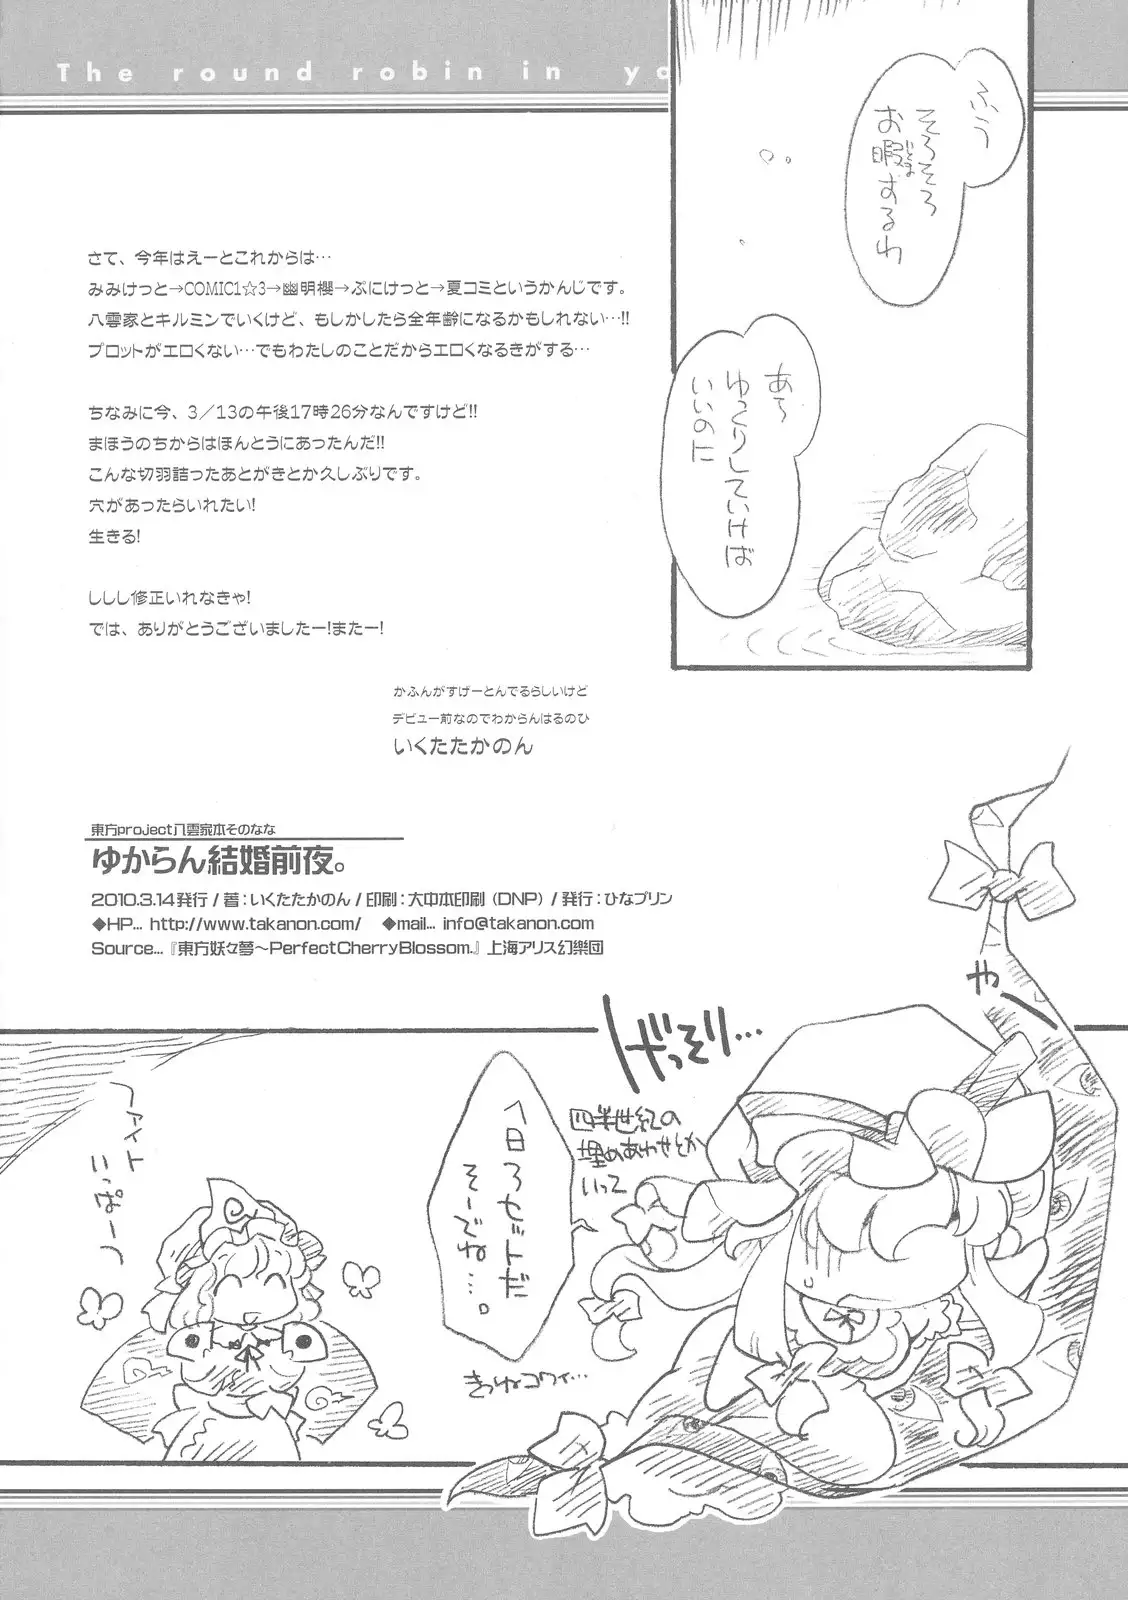 The round robin in ya
ふう
そろそろ
お暇するわ
いとま
あら
ゆっくりしていけば
いいのに
さて、今年はえーとこれからは…
みみけっと→COMIC1☆3→幽明櫻→ぷにけっと→夏コミというかんじです。
八雲家とキルミンでいくけど、もしかしたら全年齢になるかもしれない…!!
プロットがエロくない…でもわたしのことだからエロくなるきがする…
ちなみに今、3/13の午後17時26分なんですけど!!
まほうのちからはほんとうにあったんだ!!
こんな切羽詰ったあとがきとか久しぶりです。
穴があったらいれたい!
生きる!
ししし修正いれなきゃ!
では、ありがとうございましたー!またー!
かふんがすげーとんでるらしいけど
デビュー前なのでわからんはるのひ
いくたたかのん
東方project八雲家本そのなな
ゆからん結婚前夜。
2010.3.14発行 / 著:いくたたかのん / 印刷:大中本印刷 (DNP) / 発行:ひなプリン
◆HP... http://www.takanon.com/ ◆mail... info@takanon.com
Source...『東方妖々夢〜PerfectCherryBlossom.』上海アリス幻樂団
げっそり…
四半世紀の
埋めあわせとか
いって
1日3セットだ
そーでね…。
きつねコワイ…
ファイト
いっぱーつ